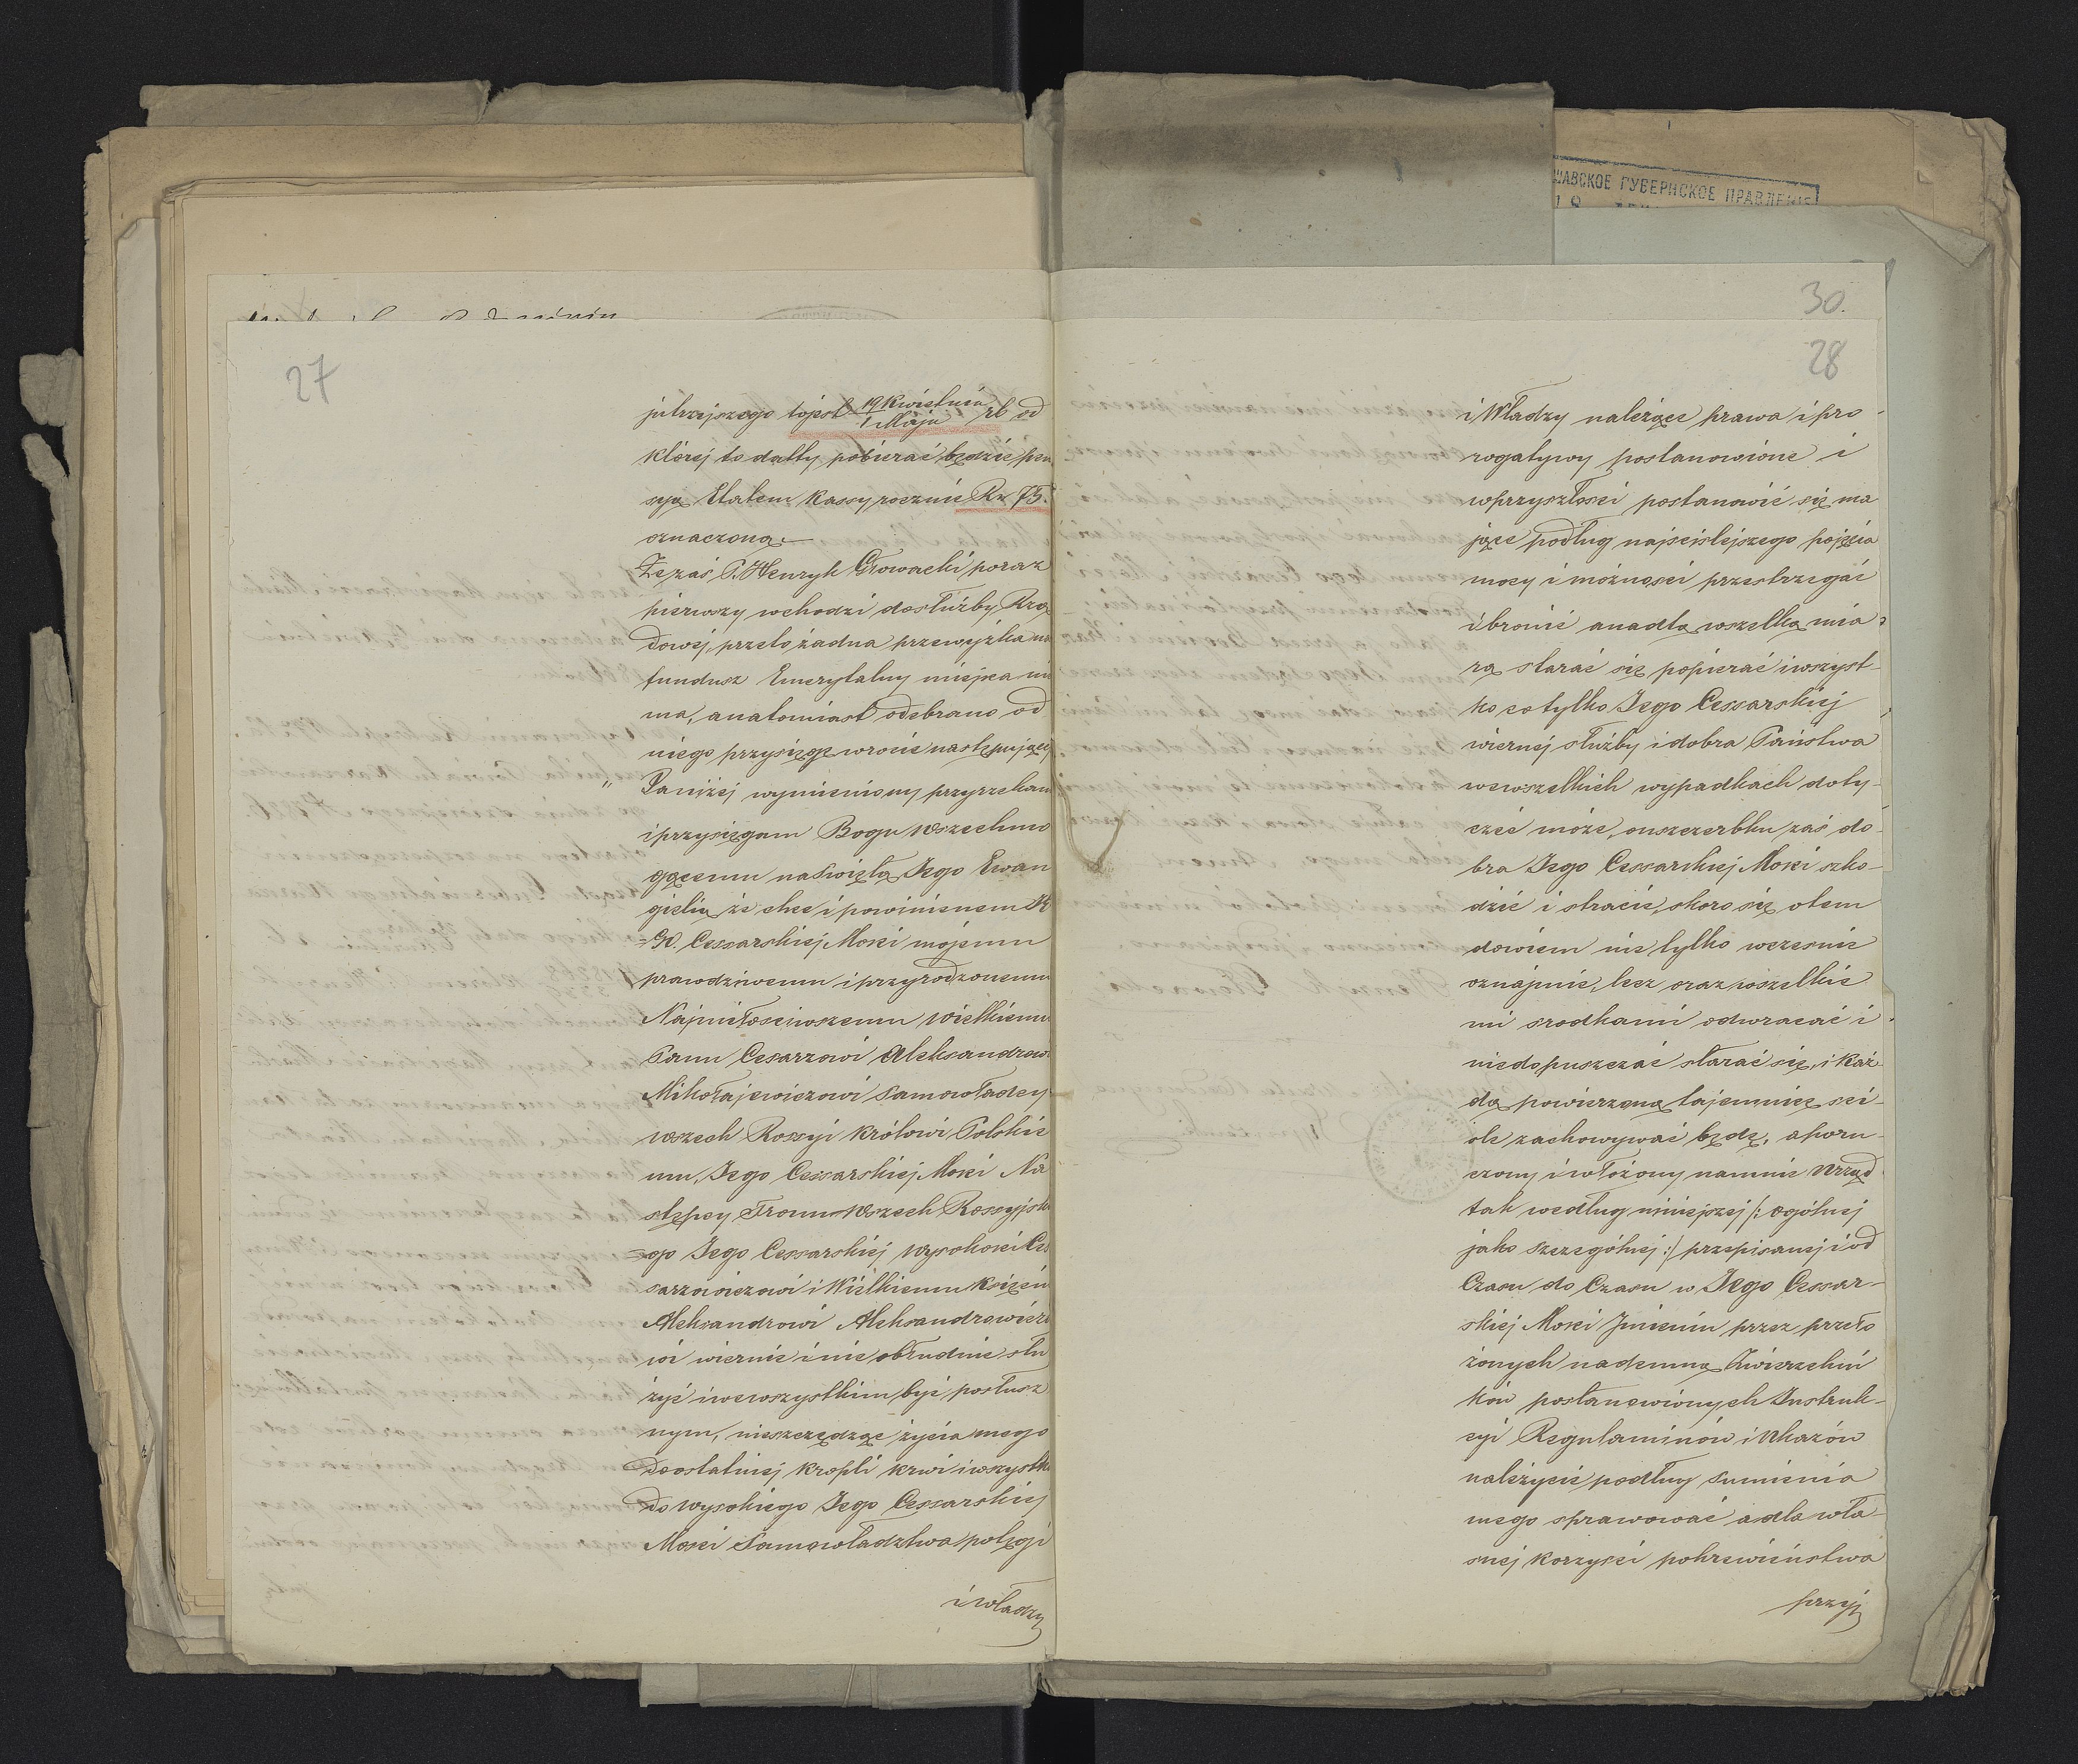 ШАВСКОЕ ГУБЕРНСКОЕ ПРАВЛЕНІЕ
27
jutrzejszego tojest 19 Kwietnia / 1 Maja rb od
której to datty pobierać będzie pen
syą Etatem Kassy rocznie Rs. 75.
oznaczoną.—
Że zaś P. Henryk Głowacki poraz
pierwszy wchodzi dosłużby Rzą
dowej, przeto żadna przewyżka na
fundusz Emerytalny miejsca nie
ma, anatomiast odebrano od
niego przysięgę wrocie następującej
„Ja niżej wymieniony przyrzekam
i przysięgam Bogu Wszechmo
gącemu naświętą Jego Ewan
gielią że chce i powinienem N
=N. Cessarskiej Mości mojemu
prawdziwemu i przyrodzonemu
Najmiłosciwszemu Wielkiemu
Panu Cesarzowi Aleksandrow
Mikołajewiczowi Samowładcy
wszech Rossyi Królowi Polskie
mu, Jego Cessarskiej Mości Na
stępcy Tronu Wszech Rossyjsk
=go Jego Cessarskiej Wysokości Ce
sarzewiczowi i Wielkiemu Księciu
Aleksandrowi Aleksandrowiczo
wi wiernie i nie obłudnie słu
żyć i wewszystkim być posłusz
nym, nieszczędząc życia mego
do ostatniej kropli krwi i wszystk
do wysokiego Jego Cessarskiej
Mości Samowładztwa potęgi
i władzy
30.
28
i Władzy należące prawa i pro-
rogatywy postanowione i
wprzyszłości postanowić się ma
jące podług najściślejszego pojęcia
mocy i możności przestrzegać
i bronić anadto wszelką mia
rą starać się popierać i wszyst-
ko co tylko Jego Cessarskiej
wiernej służby i dobra Państwa
wewszelkich wypadkach doty-
czeć może, ouszczerbku zaś do-
bra Jego Cessarskiej Mości szko-
dzie i stracie, skoro się otem
dowiem nie tylko wcześnie
oznajmie, lecz oraz wszelkie
mi srodkami odwracać i
niedopuszczać starać się, i Każ-
dą powierzoną tajemnicę sci-
śle zachowywać będę, a poru-
czony i włożony namnie Urząd
tak według niniejszej /: ogólnej
jako szczególnej :/ przepisanej i od
Czasu do Czasu w Jego Cessar-
skiej Mości Jmieniu przez przeło
żonych nademną Zwierzchni
ków postanowionych Instruk-
cyi Regulaminów i Ukazów
należycie podług sumienia
mego sprawować a dla wła-
snej korzyści pokrewieństwa
przyj